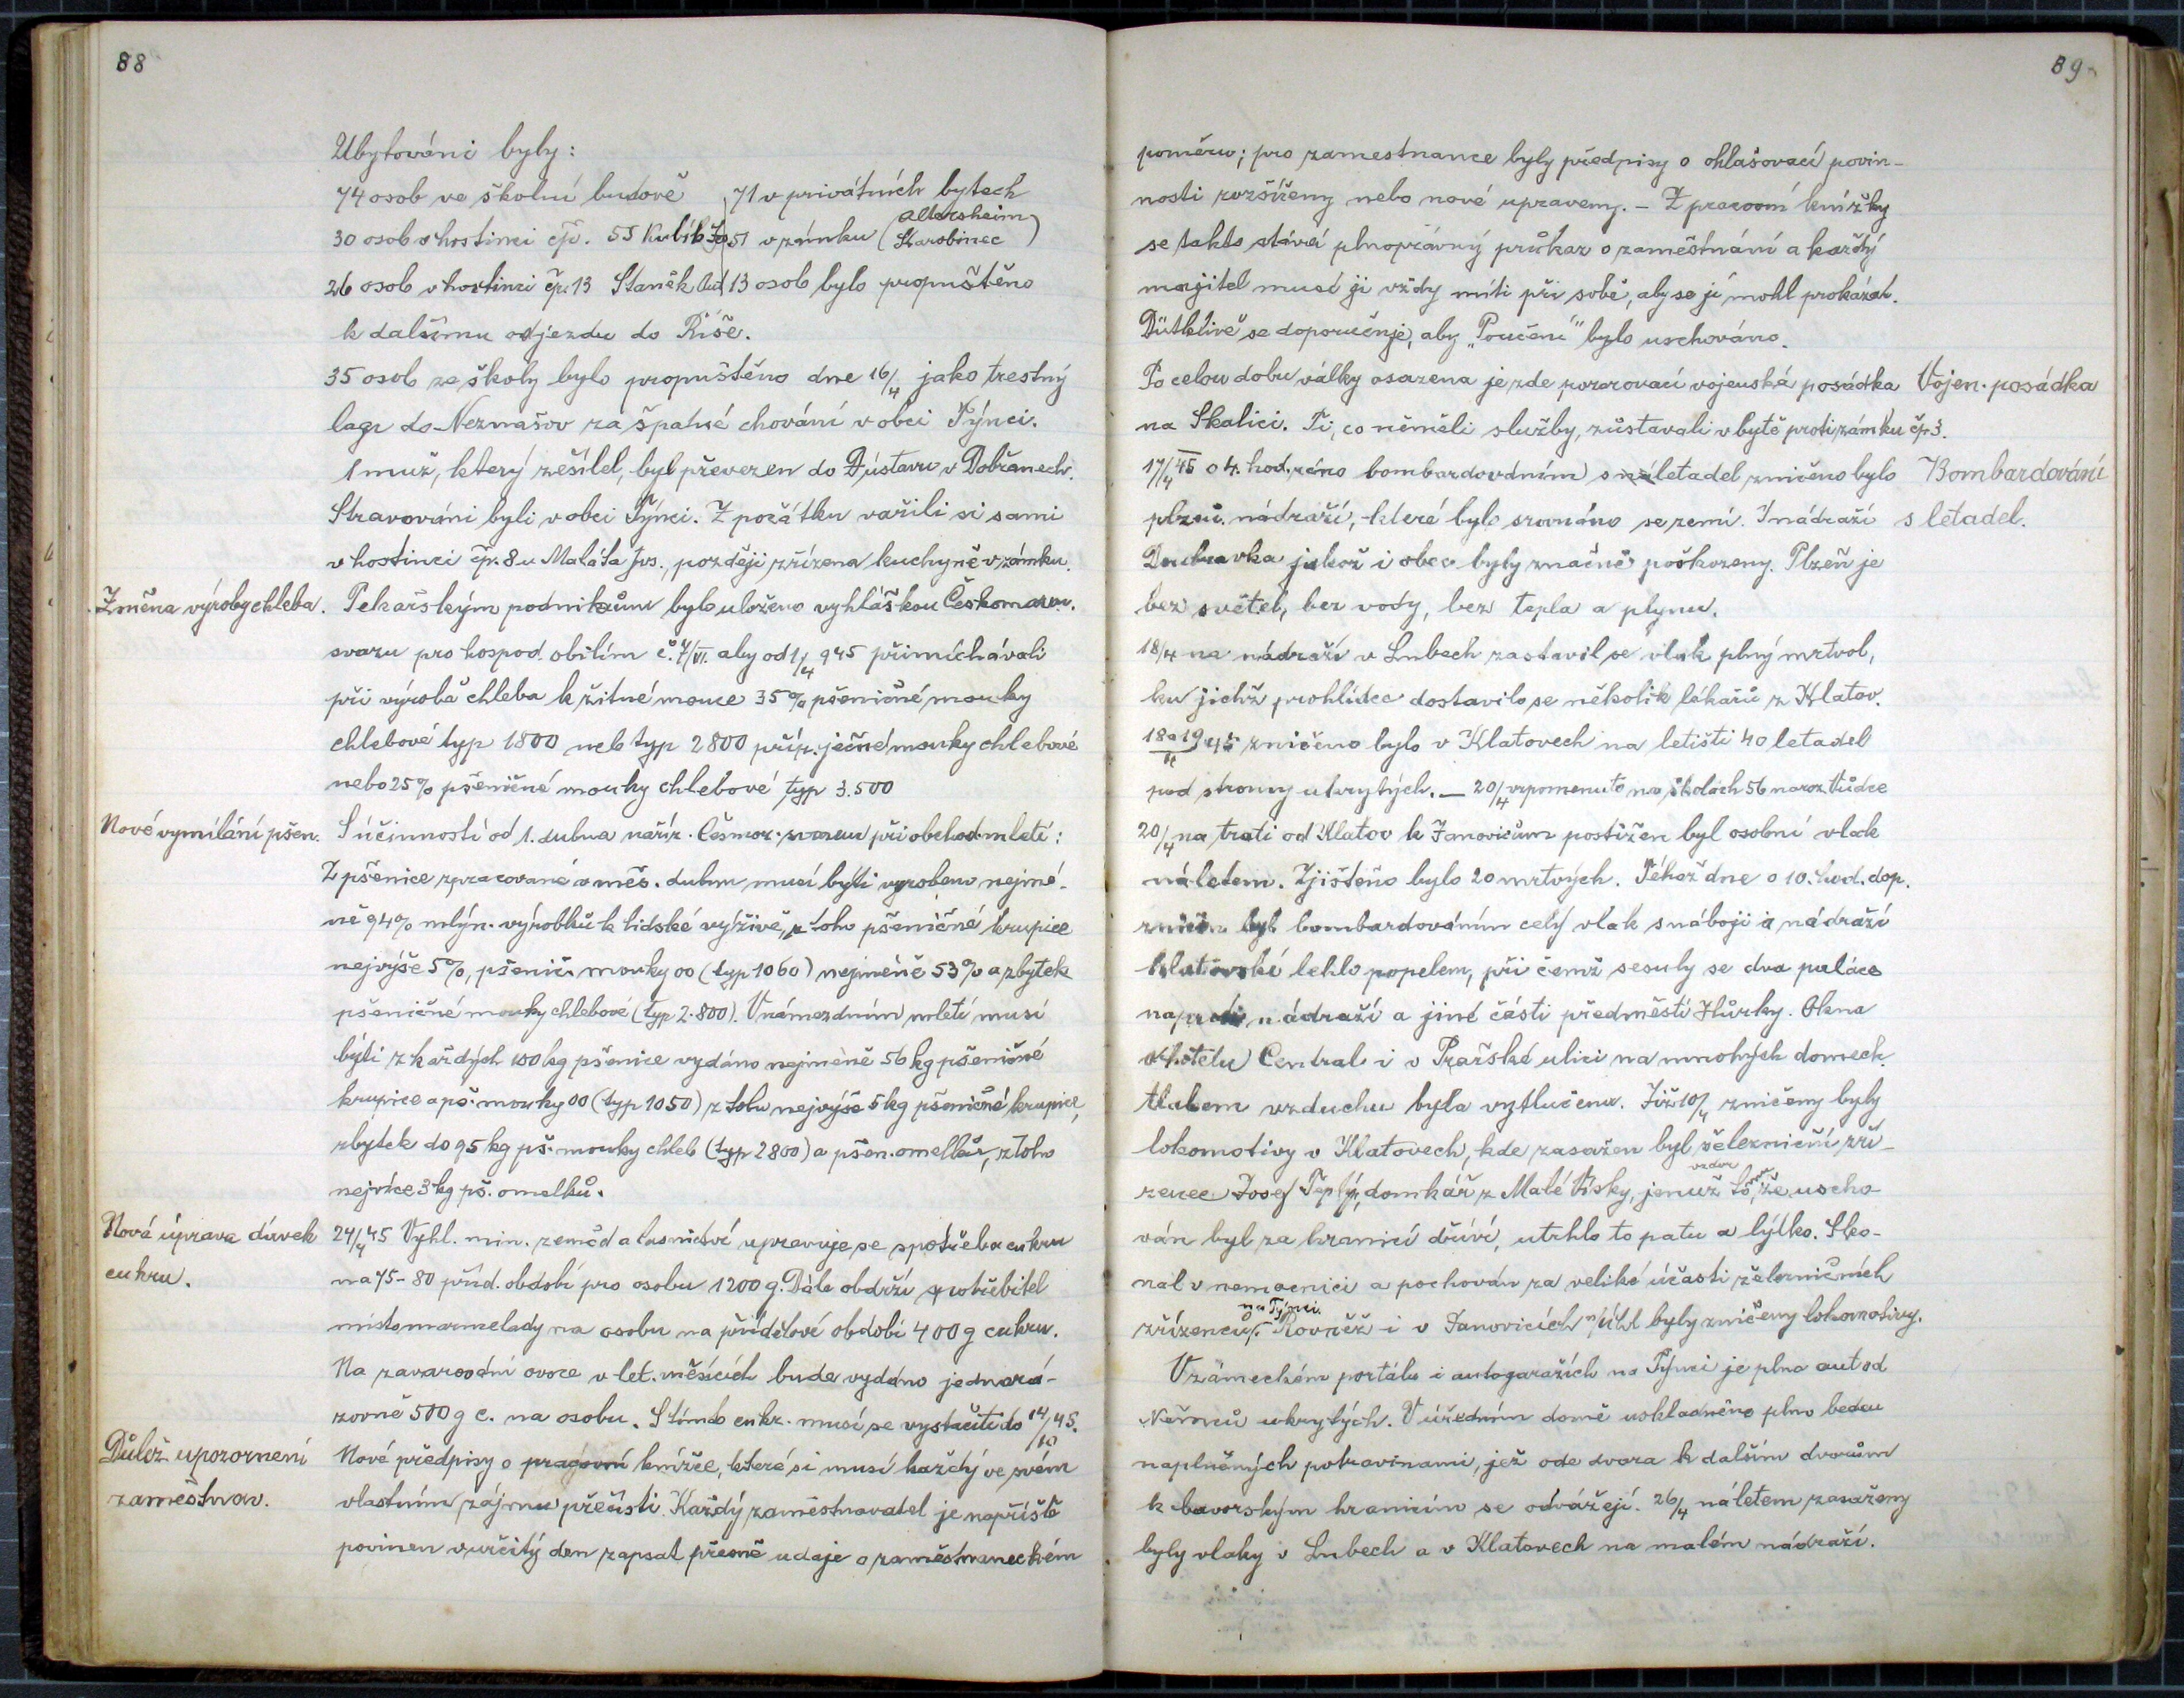 88
Ubytováni byly:
74 osob ve školní budově 71 v privátních bytech
30 osob v hostinci čp. 55 Kubík Jo. 51 v zámku (Altersheim Starobinec)
26 osob v hostinci čp. 13 Staněk Lud. 13 osob bylo propuštěno
k dalšímu odjezdu do Říše.
35 osob ze školy bylo propuštěno dne 16/4 jako trestný
lagr do Neznašov za špatné chování v obci Týnci.
1 muž, který zešílel, byl převezen do ústavu v Dobřanech.
Stravováni byli v obci Týnci. Z počátku vařili si sami
v hostinci čp. 8 u Maláta Jos., později zřízena kuchyně v zámku.
Změna výroby chleba.
Pekařským podnikům bylo uloženo vyhláškou Českomorav.
svazu pro hospod. obilím č. 7/VI. aby od 1/4 945 přimíchávali
při výrobě chleba k žitné mouce 35% pšeničné mouky
chlebové typ 1800 neb typ 2800 příp. ječné mouky chlebové
nebo 25% pšeničné mouky chlebové typ 3.500
Nové vymílání pšen.
S účinností od 1. dubna naříz. Češmor. svazu při obchod. mletí:
Z pšenice zpracované v měs. dubnu musí býti vyrobeno nejmé-
ně 94% mlýn. výrobků k lidské výživě, z toho pšeničné krupice
nejvýše 5%, pšenič. mouky 00 (typ 1060) nejméně 53% a zbytek
pšeničné mouky chlebové (typ 2.800). V námezdním mletí musí
býti z každých 100 kg pšenice vydáno nejméně 56 kg pšeničné
krupice a pš. mouky 00 (typ 1050) z toho nejvýše 5 kg pšeničné krupice,
zbytek do 95 kg pš. mouky chleb (typ 2800) a pšen. omelků, z toho
nejvíce 3 kg pš. omelků.
Nová úprava dávek
cukru.
24/4 45 Vyhl. min. zeměd a lesnictví upravuje se spotřeba cukru
na 75-80 příd. období pro osobu 1200 g. Dále obdrží spotřebitel
místo marmelady na osobu na přídělové období 400 g cukru.
Na zavarování ovoce v let. měsících bude vydáno jednorá-
zovně 500 g c. na osobu. S tímto cukr. musí se vystačiti do 14/10 45.
Důlež. upozornení
zaměstnav.
Nové předpisy o pracovní knížce, které si musí každý ve svém
vlastním zájmu přečísti. Každý zaměstnavatel je napříště
povinen v určitý den zapsat přesné udaje o zaměstnaneckém
89
poměru; pro zamestnance byly předpisy o ohlašovací povin-
nosti rozšířeny nebo nově upraveny. - Z pracovní knížky
se takto stává plnoprávný průkaz o zaměstnání a každý
majitel musí ji vždy míti při sobě, aby se jí mohl prokázat.
Důtklivě se doporučuje, aby "Poučení" bylo uschováno.
Po celou dobu války osazena je zde pozorovací vojenská posádka
Vojen. posádka
na Skalici. Ti, co neměli služby, zůstavali v bytě proti zámku čp 3.
17/4 45 o 4. hod. ráno bombardováním s letadel zničeno bylo
Bombardování
s letadel.
plzeň. nádraží, které bylo srovnáno se zemí. I nádraží
Doubravka jakož i obec byly značně poškozeny. Plzeň je
bez světel, bez vody, bez tepla a plynu.
18/4 na nádraží v Lubech zastavil se vlak plný mrtvol,
ku jichž prohlídce dostavilo se několik lékařů z Klatov.
18 a 19/4 45 zničeno bylo v Klatovech na letišti 40 letadel
pod stromy ukrytých. — 20/4 vzpomenuto na školách 56 naroz. Vůdce
20/4 na trati od Klatov k Janovicům postižen byl osobní vlak
náletem. Zjištěno bylo 20 mrtvých. Téhož dne o 10. hod. dop.
zničen byl bombardováním celý vlak s náboji a nádraží
klatovské lehlo popelem, při čemž sesuly se dva paláce
naproti nádraží a jiné části předměstí Hůrky. Okna
v hotelu Central i v Pražské ulici na mnohých domech
tlakem vzduchu byla vytlučena. Již 10/4 zničeny byly
lokomotivy v Klatovech, kde zasažen byl železniční zří-
zenec Josef Teplý, domkář z Malé Vísky, jemuž vzdor tomu, že uscho
ván byl za hranicí dříví, utrhlo to patu a lýtko. Sko-
nal v nemocnici a pochován za veliké účasti železničních
zřízenců na Týnci. Rovněž i v Janovicích n/úhl byly zničeny lokomotivy.
V zámeckém portálu i autogarážích na Týnci je plno aut od
Němců ukrytých. V úředním domě uskladněno plno beden
naplněných potravinami, jež ode dvora k dalším dvorům
k bavorským hranicím se odvážejí. 26/4 náletem zasaženy
byly vlaky v Lubech a v Klatovech na malém nádraží.